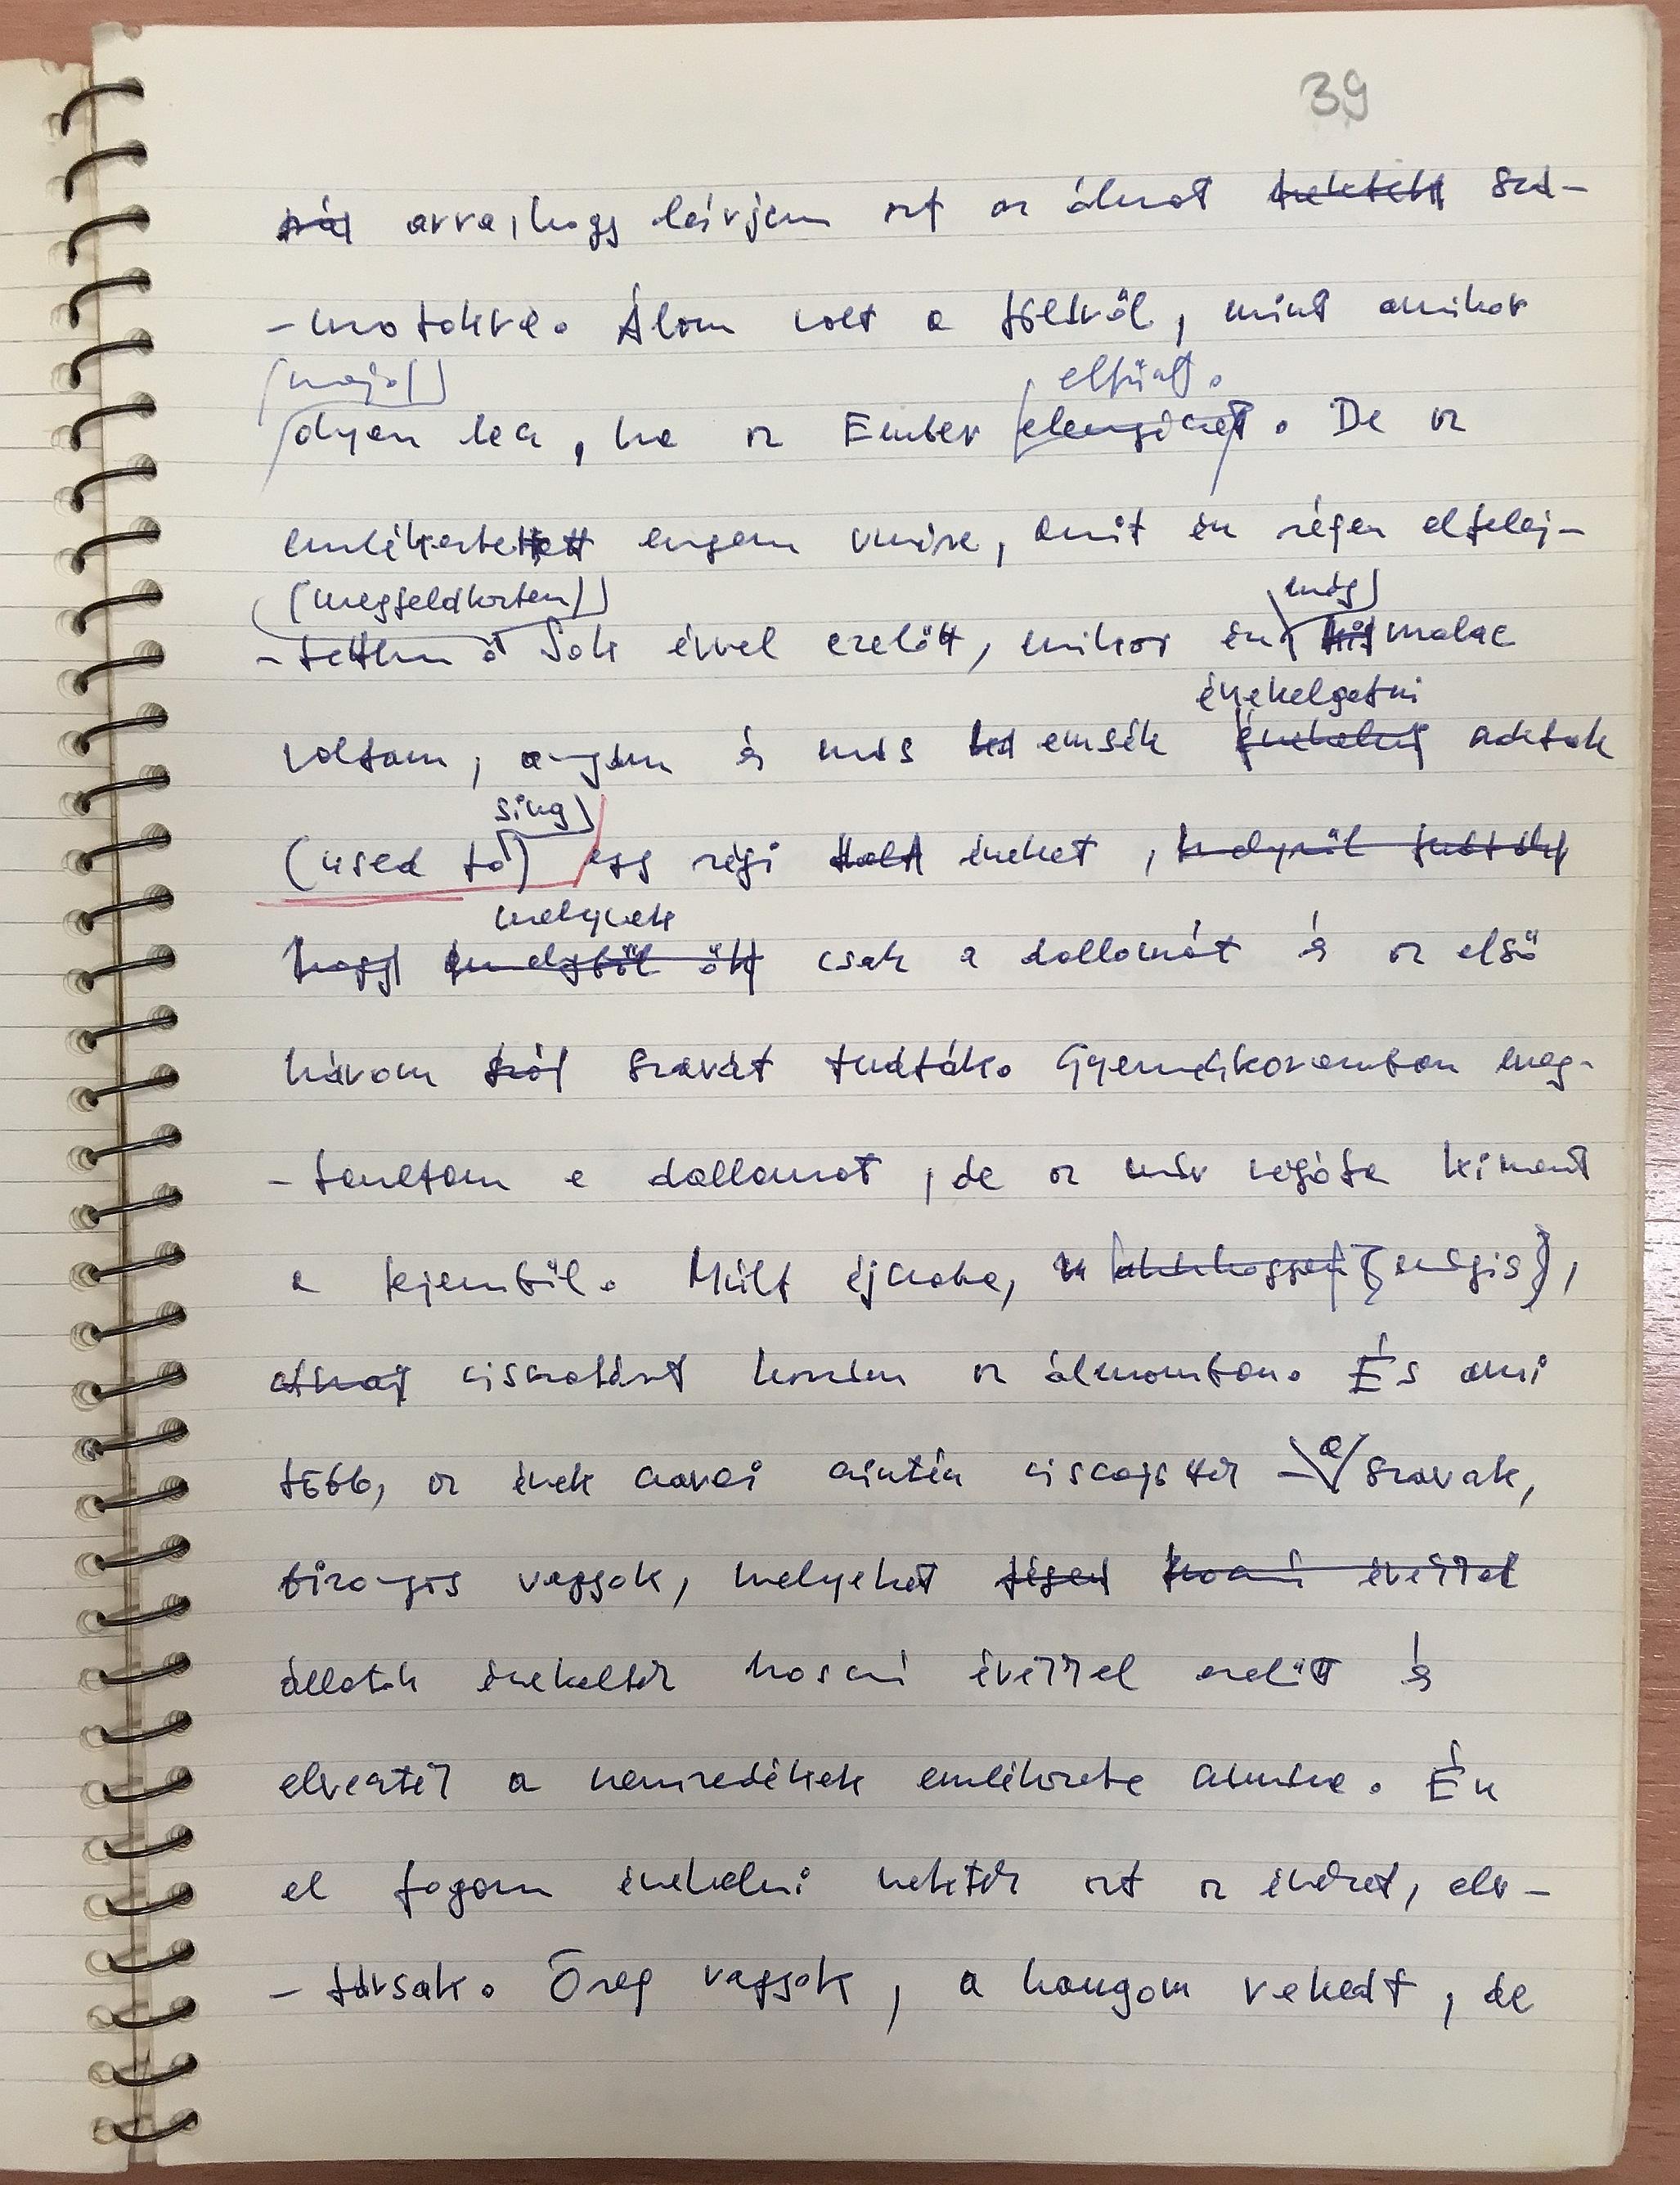 39
arra, hogy leírjam ezt az álmot szá-
-motokra. Álom volt a földről, mint amikor
(majd) eltűnt.
olyan lesz, ha az Ember. De ez
emlékeztetett engem vmire, amit én régen elfelej-
(megfeledkeztem) még
-tettem. Sok évvel ezelőtt, mikor én kis malac
énekelgetni
voltam, anyám és más emsék énekelni adtak
sing
(used to) egy régi éneket, melyről tudták
melynek
hogy melyből ők csak a dallamát és az első
három szót szavát tudták. Gyermekkoromban meg-
-tanultam e dallamot, de ez már régóta kiment
a fejemből. Múlt éjszaka, mégis,
visszatért hozzám az álmomban. És ami
a
több, az ének szavai szintén visszajöttek - szavak,
bizonyos vagyok, melyeket régen hosszú évekkel
állatok énekeltek hosszú évekkel ezelőtt és
elvesztek a nemzedékek emlékezete számára. Én
el fogom énekelni nektek ezt az éneket, elv-
-társak. Öreg vagyok, a hangom rekedt, de